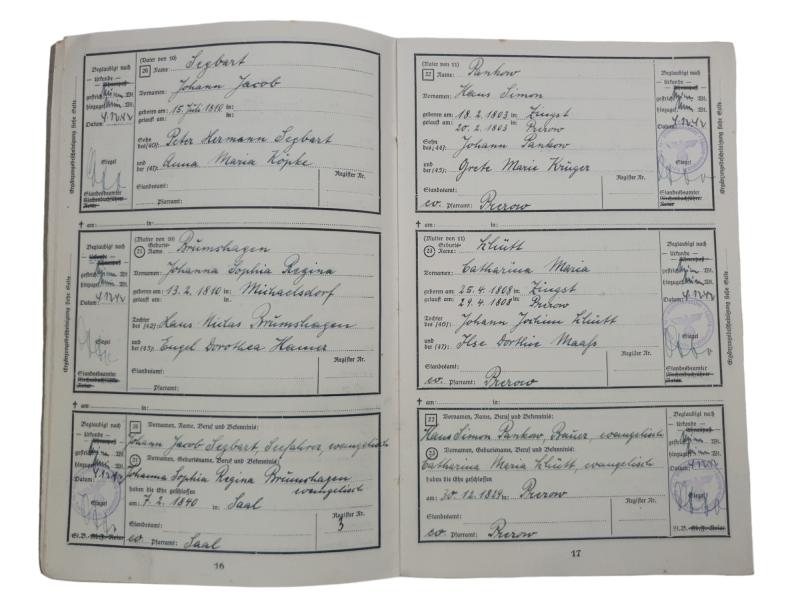 (Vater von 10)
20 Name: Segbart
Vornamen: Johann Jacob
geboren am: 15. Juli 1810 in:
getauft am: in:
Sohn des (40): Peter Hermann Segbart
und der (41): Anna Maria Köpke
Register Nr.
Standesamt:
Pfarramt:
Beglaubigt nach
— Urkunde —
Datum: 4.12.42
Siegel
Standesbeamter
Kirchenbuchführer
Notar
Ergänzungsbescheinigung siehe Seite
† am in:
(Mutter von 10)
21 Geburts-Name: Brümshagen
Vornamen: Johanna Sophia Regina
geboren am: 13. 2. 1810 in: Michaelsdorf
getauft am: in:
Tochter des (42): Hans Niclas Brümshagen
und der (43): Engel Dorothea Hamer
Register Nr.
Standesamt:
Pfarramt:
Beglaubigt nach
— Urkunde —
Datum: 4.12.42
Siegel
Standesbeamter
Kirchenbuchführer
Notar
Ergänzungsbescheinigung siehe Seite
† am in:
20 Vornamen, Name, Beruf und Bekenntnis:
Johann Jacob Segbart, Seefahrer, evangelisch
21 Vornamen, Geburtsname, Beruf und Bekenntnis:
Johanna Sophia Regina Brümshagen
evangelisch
haben die Ehe geschlossen
am 7. 2. 1840 in Saal
Register Nr.
3
Standesamt:
ev. Pfarramt: Saal
Beglaubigt nach
— Urkunde —
Datum: 4.12.42
Siegel
16
(Vater von 11)
22 Name: Pankow
Vornamen: Hans Simon
geboren am: 18. 2. 1803 in: Zingst
getauft am: 20. 2. 1803 in: Prerow
Sohn des (44): Johann Pankow
und der (45): Grete Marie Krüger
Register Nr.
Standesamt:
ev. Pfarramt: Prerow
Beglaubigt nach
— Urkunde —
Datum: 4.12.42
Siegel
Standesbeamter
Kirchenbuchführer
Notar
Ergänzungsbescheinigung siehe Seite
† am in:
(Mutter von 11)
23 Geburts-Name: Klütt
Vornamen: Catharina Maria
geboren am: 25. 4. 1808 in: Zingst
getauft am: 29. 4. 1808 in: Prerow
Tochter des (46): Johann Jochim Klütt
und der (47): Ilse Dorthie Maaß
Register Nr.
Standesamt:
ev. Pfarramt: Prerow
Beglaubigt nach
— Urkunde —
Datum: 4.12.42
Siegel
Standesbeamter
Kirchenbuchführer
Notar
Ergänzungsbescheinigung siehe Seite
† am in:
22 Vornamen, Name, Beruf und Bekenntnis:
Hans Simon Pankow, Bauer, evangelisch
23 Vornamen, Geburtsname, Beruf und Bekenntnis:
Catharina Maria Klütt, evangelisch
haben die Ehe geschlossen
am 30. 12. 1829 in Prerow
Register Nr.
Standesamt:
ev. Pfarramt: Prerow
Beglaubigt nach
— Urkunde —
Datum: 4.12.42
Siegel
17